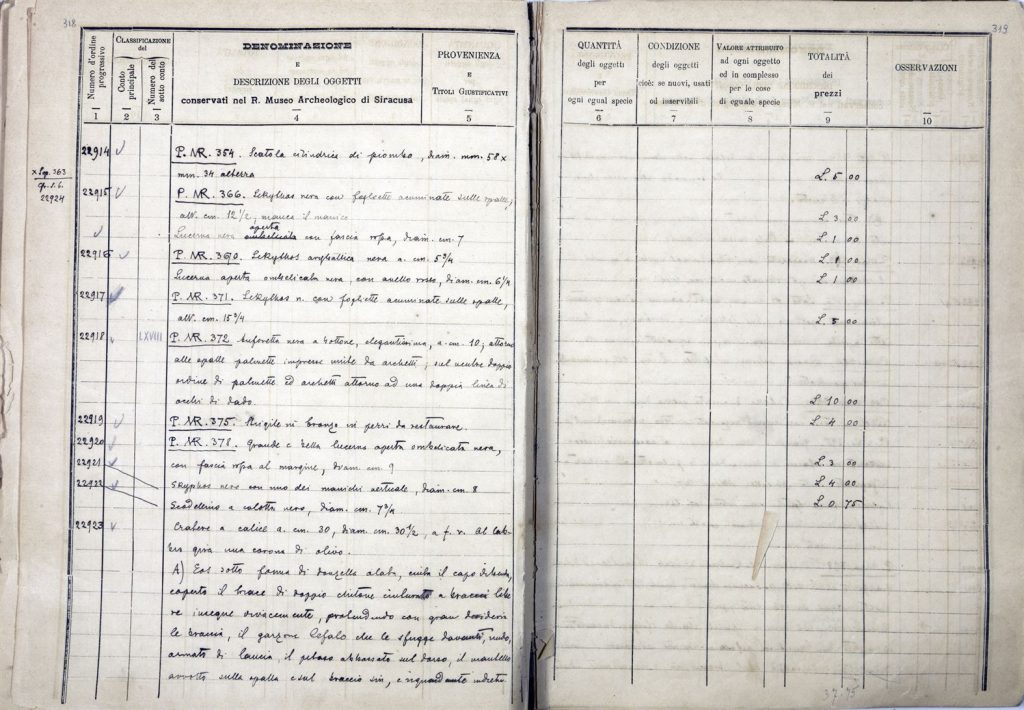 318
Numero d'ordine progressivo
CLASSIFICAZIONE del
Conto principale
Numero del sotto conto
DENOMINAZIONE
E
DESCRIZIONE DEGLI OGGETTI
conservati nel R. Museo Archeologico di Siracusa
PROVENIENZA
E
TITOLI GIUSTIFICATIVI
1 2 3 4 5
22914 P. NR. 354. Scatola cilindrica di piombo, diam. mm. 58 x
mm. 34 altezza
x 363
22924
22915 P. NR. 366. Lekythos nera con fogliette acuminate sulle spalle,
alt. cm. 12 1/2; manca il manico
aperta
Lucerna nera ombelicata con fascia rossa, diam. cm. 7
22916 P. NR. 370. Lekythos aryballica nera a. cm. 5 3/4
Lucerna aperta ombelicata nera, con anello rosso, diam. cm. 6 1/4
22917 P. NR. 371. Lekythos n. con fogliette acuminate sulle spalle,
alt. cm. 15 3/4
22918 LXVIII P. NR. 372. Anforetta nera a bottone, elegantissima, a. cm. 10; attorno
alle spalle palmette impresse unite da archetti; sul ventre doppio
ordine di palmette ed archetti attorno ad una doppia linea di
occhi di dado.
22919 P. NR. 375. Strigile in bronzo in pezzi da restaurare.
22920 P. NR. 378. Grande e bella lucerna aperta ombelicata nera,
con fascia rossa al margine, diam. cm. 9
22921 Skyphos nero con uno dei manichi verticale, diam. cm. 8
22922 Scodellino a calotta nero, diam. cm. 7 3/4
22923 Cratere a calice a. cm. 30, diam. cm. 30 1/2, a f. r. Al lab-
bro gira una corona di olivo.
A) Eos sotto forma di donzella alata, cinta il capo di benda,
coperto il brace di doppio chitone cinturato a braccia libe
re insegue, protendendo con gran desiderio
le braccia, il garzone Cefalo che le sfugge davanti, nudo,
armato di lancia, il petaso abbassato sul dorso, il mantello
avvolto sulla spalla e sul braccio sin., e riguardante indietro
319
QUANTITÀ
degli oggetti
per
ogni egual specie
CONDIZIONE
degli oggetti
cioè: se nuovi, usati
od inservibili
VALORE ATTRIBUITO
ad ogni oggetto
ed in complesso
per le cose
di eguale specie
TOTALITÀ
dei
prezzi
OSSERVAZIONI
6 7 8 9 10
L. 5 00
L. 3 00
L. 1 00
L. 1 00
L. 1 00
L. 5 00
L. 10 00
L. 4 00
L. 3 00
L. 4 00
L. 0 75
37.75